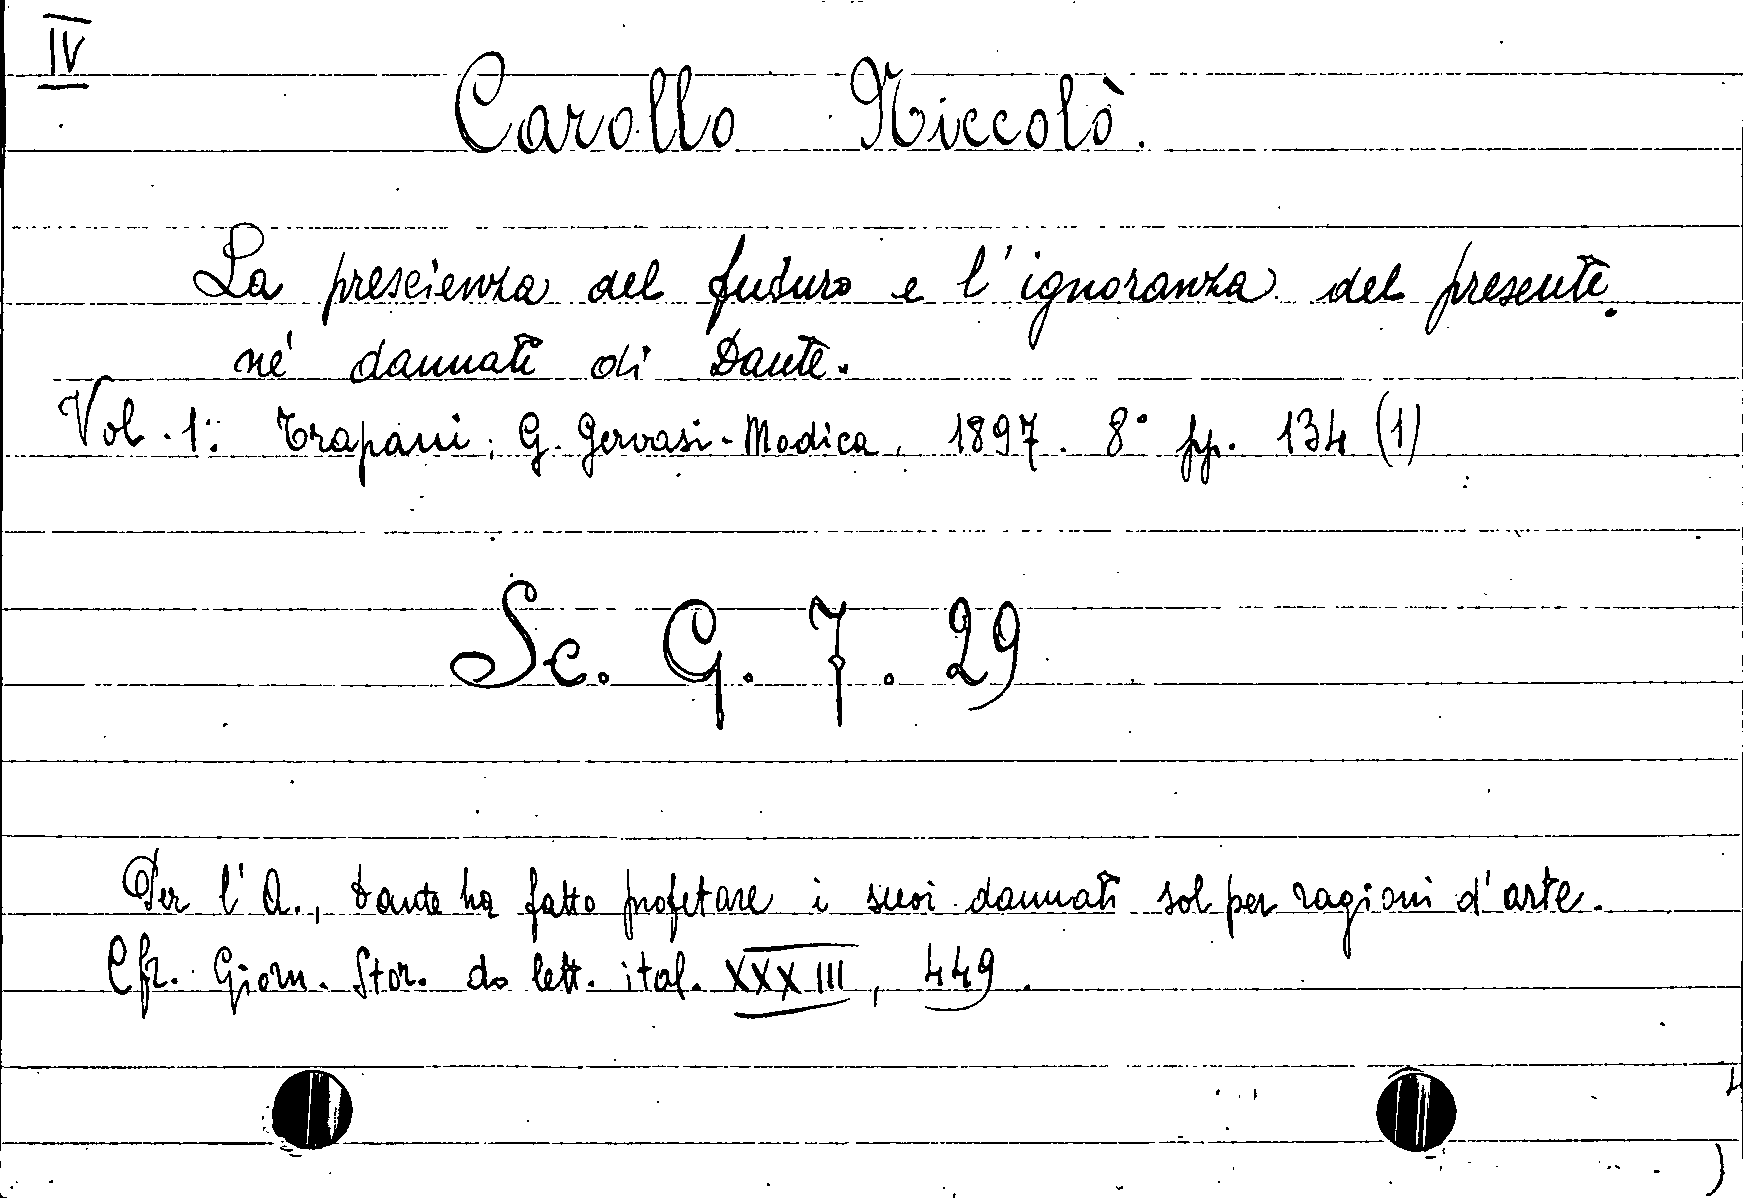 IV
Carollo Niccolò.
La prescienza del futuro e l'ignoranza del presente
né dannati di Dante.
Vol. 1: Trapani: G. Gervasi-Modica, 1897. 8° pp. 134 (1)
Sc. G. 7. 29
Per l'A., Dante ha fatto profetare i suoi dannati sol per ragioni d'arte.
Cfr. Giorn. Stor. da lett. ital. XXXIII, 449.